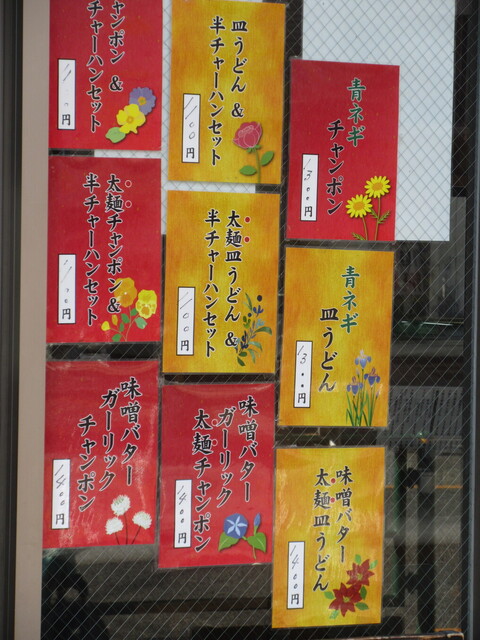 ャンポン &
半チャーハンセット
円
皿うどん &
半チャーハンセット
1100円
青ネギ
チャンポン
1300円
太麺チャンポン &
半チャーハンセット
円
太麺皿うどん &
半チャーハンセット
1100円
青ネギ
皿うどん
1300円
味噌バター
ガーリック
チャンポン
1400円
味噌バター
ガーリック
太麺チャンポン
1400円
味噌バター
太麺皿うどん
1400円